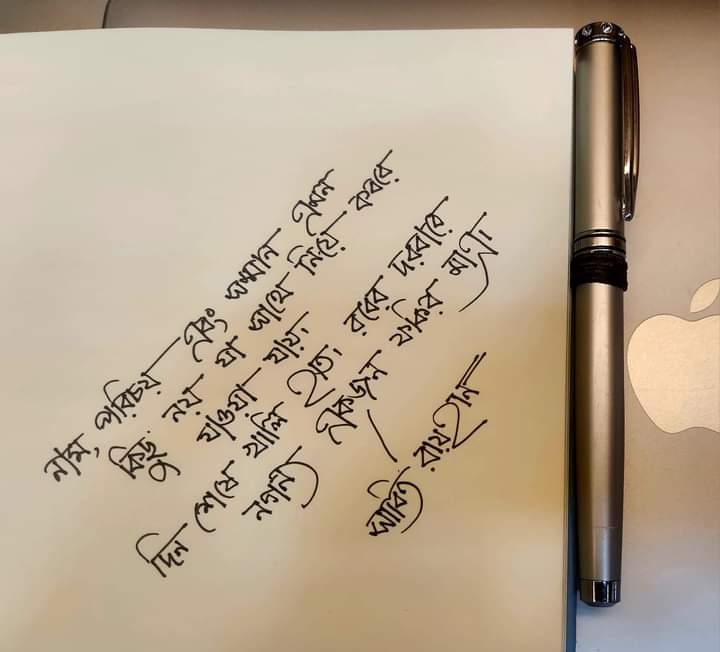 নাম, পরিচয় এবং সম্মান এমন
কিছু নয় যা সাথে নিয়ে কবরে
যাওয়া যায়।
দিন শেষে খালি হাত। রবের দরবারে
নগণ্য একজন ফকির মাত্র।
রায়হান